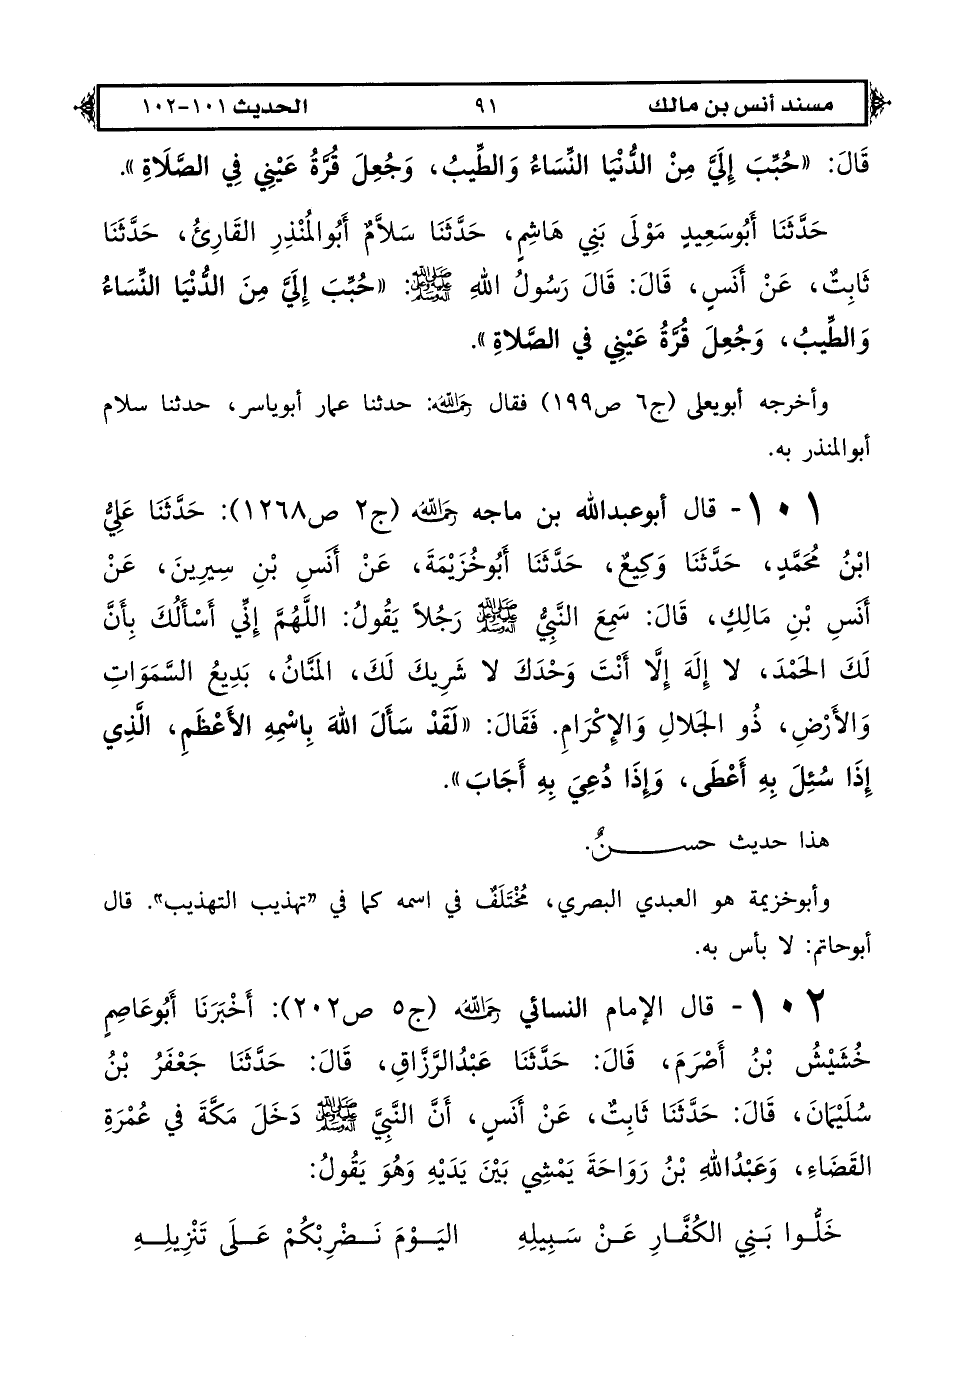 مسند أنس بن مالك ٩١ الحديث ١٠١-١٠٢
قَالَ: «حُبِّبَ إِلَيَّ مِنْ الدُّنْيَا النِّسَاءُ وَالطِّيبُ، وَجُعِلَ قُرَّةُ عَيْنِي فِي الصَّلَاةِ».
حَدَّثَنَا أَبُوسَعِيدٍ مَوْلَى بَنِي هَاشِمٍ، حَدَّثَنَا سَلاَّمٌ أَبُوالمُنْذِرِ القَارِئُ، حَدَّثَنَا
ثَابِتٌ، عَنْ أَنَسٍ، قَالَ: قَالَ رَسُولُ اللهِ ﷺ: «حُبِّبَ إِلَيَّ مِنَ الدُّنْيَا النِّسَاءُ
وَالطِّيبُ، وَجُعِلَ قُرَّةُ عَيْنِي في الصَّلاةِ».
وأخرجه أبويعلى (ج٦ ص١٩٩) فقال رحمه الله: حدثنا عمار أبوياسر، حدثنا سلام
أبوالمنذر به.
١٠١- قال أبوعبدالله بن ماجه رحمه الله (ج٢ ص١٢٦٨): حَدَّثَنَا عَلِيُّ
ابْنُ مُحَمَّدٍ، حَدَّثَنَا وَكِيعٌ، حَدَّثَنَا أَبُوخُزَيْمَةَ، عَنْ أَنَسِ بْنِ سِيرِينَ، عَنْ
أَنَسِ بْنِ مَالِكٍ، قَالَ: سَمِعَ النَّبِيُّ ﷺ رَجُلاً يَقُولُ: اللَّهُمَّ إِنِّي أَسْأَلُكَ بِأَنَّ
لَكَ الحَمْدَ، لا إِلَهَ إِلَّا أَنْتَ وَحْدَكَ لا شَرِيكَ لَكَ، المَنَّانُ، بَدِيعُ السَّمَوَاتِ
وَالأَرْضِ، ذُو الجَلالِ وَالإِكْرَامِ. فَقَالَ: «لَقَدْ سَأَلَ اللهَ بِاسْمِهِ الأَعْظَمِ، الَّذِي
إِذَا سُئِلَ بِهِ أَعْطَى، وَإِذَا دُعِيَ بِهِ أَجَابَ».
هذا حديث حســـــنٌ.
وأبوخزيمة هو العبدي البصري، مُخْتَلَفٌ في اسمه كما في "تهذيب التهذيب". قال
أبوحاتم: لا بأس به.
١٠٢- قال الإمام النسائي رحمه الله (ج٥ ص٢٠٢): أَخْبَرَنَا أَبُوعَاصِمٍ
خُشَيْشُ بْنُ أَصْرَمَ، قَالَ: حَدَّثَنَا عَبْدُالرَّزَّاقِ، قَالَ: حَدَّثَنَا جَعْفَرُ بْنُ
سُلَيْمَانَ، قَالَ: حَدَّثَنَا ثَابِتٌ، عَنْ أَنَسٍ، أَنَّ النَّبِيَّ ﷺ دَخَلَ مَكَّةَ في عُمْرَةِ
القَضَاءِ، وَعَبْدُاللهِ بْنُ رَوَاحَةَ يَمْشِي بَيْنَ يَدَيْهِ وَهُوَ يَقُولُ:
خَلُّوا بَنِي الكُفَّارِ عَنْ سَبِيلِهِ اليَوْمَ نَضْرِبْكُمْ عَلَى تَنْزِيلِهِ